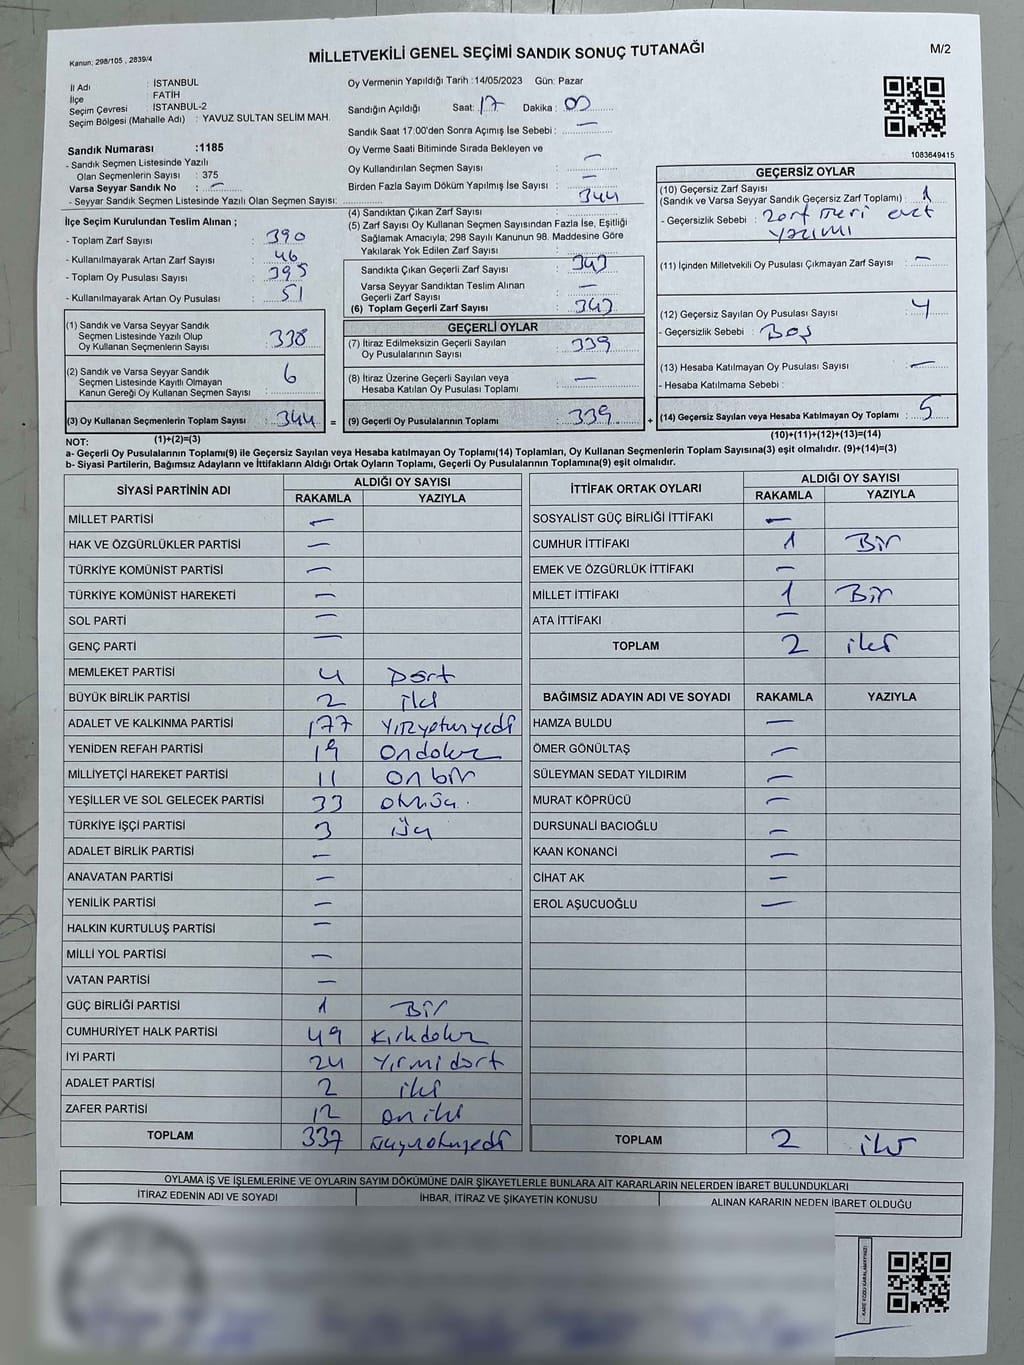 Kanun; 298/105 , 2839/4
MİLLETVEKİLİ GENEL SEÇİMİ SANDIK SONUÇ TUTANAĞI
M/2
İl Adı : İSTANBUL
İlçe : FATİH
Seçim Çevresi : İSTANBUL-2
Seçim Bölgesi (Mahalle Adı) : YAVUZ SULTAN SELİM MAH.
Sandık Numarası :1185
- Sandık Seçmen Listesinde Yazılı
Olan Seçmenlerin Sayısı : 375
Varsa Seyyar Sandık No : —
- Seyyar Sandık Seçmen Listesinde Yazılı Olan Seçmen Sayısı:
Oy Vermenin Yapıldığı Tarih :14/05/2023 Gün: Pazar
Sandığın Açıldığı Saat: 17 Dakika : 00
Sandık Saat 17.00'den Sonra Açımış İse Sebebi : —
Oy Verme Saati Bitiminde Sırada Bekleyen ve
Oy Kullandırılan Seçmen Sayısı —
Birden Fazla Sayım Döküm Yapılmış İse Sayısı —
1083649415
İlçe Seçim Kurulundan Teslim Alınan ;
- Toplam Zarf Sayısı : 390
- Kullanılmayarak Artan Zarf Sayısı : 46
- Toplam Oy Pusulası Sayısı : 395
- Kullanılmayarak Artan Oy Pusulası : 51
(1) Sandık ve Varsa Seyyar Sandık
Seçmen Listesinde Yazılı Olup
Oy Kullanan Seçmenlerin Sayısı : 338
(2) Sandık ve Varsa Seyyar Sandık
Seçmen Listesinde Kayıtlı Olmayan
Kanun Gereği Oy Kullanan Seçmen Sayısı : 6
(3) Oy Kullanan Seçmenlerin Toplam Sayısı : 344 =
(4) Sandıktan Çıkan Zarf Sayısı 344
(5) Zarf Sayısı Oy Kullanan Seçmen Sayısından Fazla İse, Eşitliği
Sağlamak Amacıyla; 298 Sayılı Kanunun 98. Maddesine Göre
Yakılarak Yok Edilen Zarf Sayısı
Sandıkta Çıkan Geçerli Zarf Sayısı : 343
Varsa Seyyar Sandıktan Teslim Alınan
Geçerli Zarf Sayısı : —
(6) Toplam Geçerli Zarf Sayısı : 343
GEÇERLİ OYLAR
(7) İtiraz Edilmeksizin Geçerli Sayılan
Oy Pusulalarının Sayısı : 339
(8) İtiraz Üzerine Geçerli Sayılan veya
Hesaba Katılan Oy Pusulası Toplamı : —
(9) Geçerli Oy Pusulalarının Toplamı : 339 +
GEÇERSİZ OYLAR
(10) Geçersiz Zarf Sayısı
(Sandık ve Varsa Seyyar Sandık Geçersiz Zarf Toplamı) : 1
- Geçersizlik Sebebi : Zarf üzeri evet
yazımı
(11) İçinden Milletvekili Oy Pusulası Çıkmayan Zarf Sayısı : —
(12) Geçersiz Sayılan Oy Pusulası Sayısı : 4
- Geçersizlik Sebebi : Boş
(13) Hesaba Katılmayan Oy Pusulası Sayısı : —
- Hesaba Katılmama Sebebi :
(14) Geçersiz Sayılan veya Hesaba Katılmayan Oy Toplamı : 5
NOT: (1)+(2)=(3)
(10)+(11)+(12)+(13)=(14)
a- Geçerli Oy Pusulalarının Toplamı(9) ile Geçersiz Sayılan veya Hesaba katılmayan Oy Toplamı(14) Toplamları, Oy Kullanan Seçmenlerin Toplam Sayısına(3) eşit olmalıdır. (9)+(14)=(3)
b- Siyasi Partilerin, Bağımsız Adayların ve İttifakların Aldığı Ortak Oyların Toplamı, Geçerli Oy Pusulalarının Toplamına(9) eşit olmalıdır.
SİYASİ PARTİNİN ADI ALDIĞI OY SAYISI
RAKAMLA YAZIYLA
MİLLET PARTİSİ —
HAK VE ÖZGÜRLÜKLER PARTİSİ —
TÜRKİYE KOMÜNİST PARTİSİ —
TÜRKİYE KOMÜNİST HAREKETİ —
SOL PARTİ —
GENÇ PARTİ —
MEMLEKET PARTİSİ 4 Dört
BÜYÜK BİRLİK PARTİSİ 2 iki
ADALET VE KALKINMA PARTİSİ 177 Yüzyetmişyedi
YENİDEN REFAH PARTİSİ 19 Ondokuz
MİLLİYETÇİ HAREKET PARTİSİ 11 Onbir
YEŞİLLER VE SOL GELECEK PARTİSİ 33 Otuzüç
TÜRKİYE İŞÇİ PARTİSİ 3 Üç
ADALET BİRLİK PARTİSİ —
ANAVATAN PARTİSİ —
YENİLİK PARTİSİ —
HALKIN KURTULUŞ PARTİSİ —
MİLLİ YOL PARTİSİ —
VATAN PARTİSİ —
GÜÇ BİRLİĞİ PARTİSİ 1 Bir
CUMHURİYET HALK PARTİSİ 49 Kırkdokuz
İYİ PARTİ 24 Yirmi dört
ADALET PARTİSİ 2 iki
ZAFER PARTİSİ 12 on iki
TOPLAM 337 üçyüzotuzyedi
İTTİFAK ORTAK OYLARI ALDIĞI OY SAYISI
RAKAMLA YAZIYLA
SOSYALİST GÜÇ BİRLİĞİ İTTİFAKI —
CUMHUR İTTİFAKI 1 Bir
EMEK VE ÖZGÜRLÜK İTTİFAKI —
MİLLET İTTİFAKI 1 Bir
ATA İTTİFAKI —
TOPLAM 2 iki
BAĞIMSIZ ADAYIN ADI VE SOYADI RAKAMLA YAZIYLA
HAMZA BULDU —
ÖMER GÖNÜLTAŞ —
SÜLEYMAN SEDAT YILDIRIM —
MURAT KÖPRÜCÜ —
DURSUNALİ BACIOĞLU —
KAAN KONANCİ —
CİHAT AK —
EROL AŞUCUOĞLU —
TOPLAM 2 iki
OYLAMA İŞ VE İŞLEMLERİNE VE OYLARIN SAYIM DÖKÜMÜNE DAİR ŞİKAYETLERLE BUNLARA AİT KARARLARIN NELERDEN İBARET BULUNDUKLARI
İTİRAZ EDENİN ADI VE SOYADI İHBAR, İTİRAZ VE ŞİKAYETİN KONUSU ALINAN KARARIN NEDEN İBARET OLDUĞU